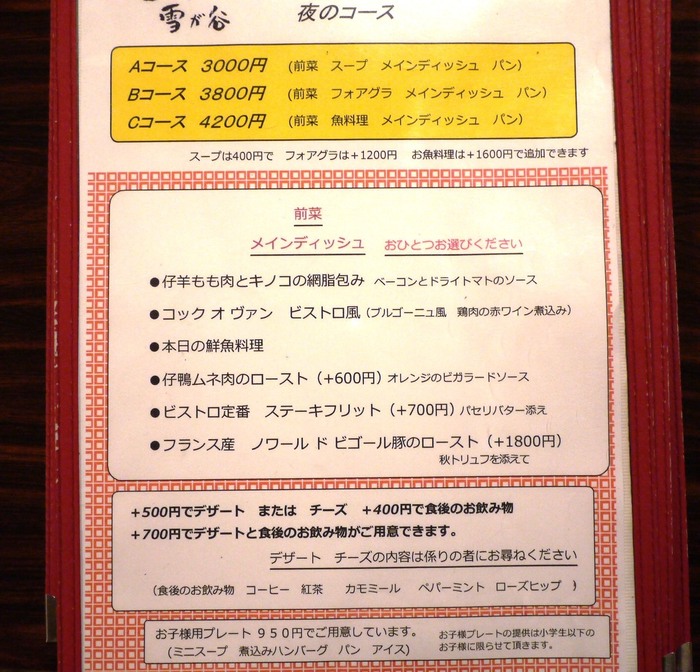 雪が谷
夜のコース
Aコース 3000円 (前菜 スープ メインディッシュ パン)
Bコース 3800円 (前菜 フォアグラ メインディッシュ パン)
Cコース 4200円 (前菜 魚料理 メインディッシュ パン)
スープは400円で フォアグラは+1200円 お魚料理は+1600円で追加できます
前菜
メインディッシュ おひとつお選びください
●仔羊もも肉とキノコの網脂包み ベーコンとドライトマトのソース
●コック オ ヴァン ビストロ風(ブルゴーニュ風 鶏肉の赤ワイン煮込み)
●本日の鮮魚料理
●仔鴨ムネ肉のロースト(+600円) オレンジのビガラードソース
●ビストロ定番 ステーキフリット(+700円) パセリバター添え
●フランス産 ノワール ド ビゴール豚のロースト(+1800円)
秋トリュフを添えて
+500円でデザート または チーズ +400円で食後のお飲み物
+700円でデザートと食後のお飲み物がご用意できます。
デザート チーズの内容は係りの者にお尋ねください
(食後のお飲み物 コーヒー 紅茶 カモミール ペパーミント ローズヒップ )
お子様用プレート 950円でご用意しています。
(ミニスープ 煮込みハンバーグ パン アイス)
お子様プレートの提供は小学生以下の
お子様に限らせて頂きます。